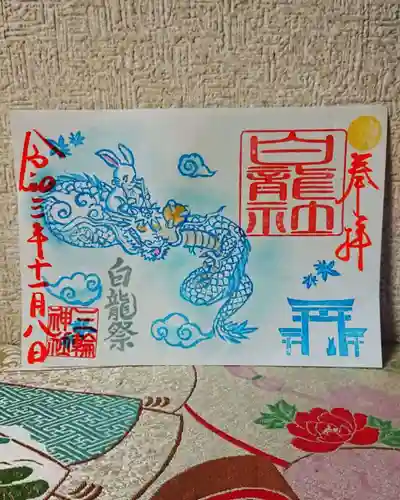 奉拝
白龍社
白龍祭
三輪神社
令和三年十一月八日